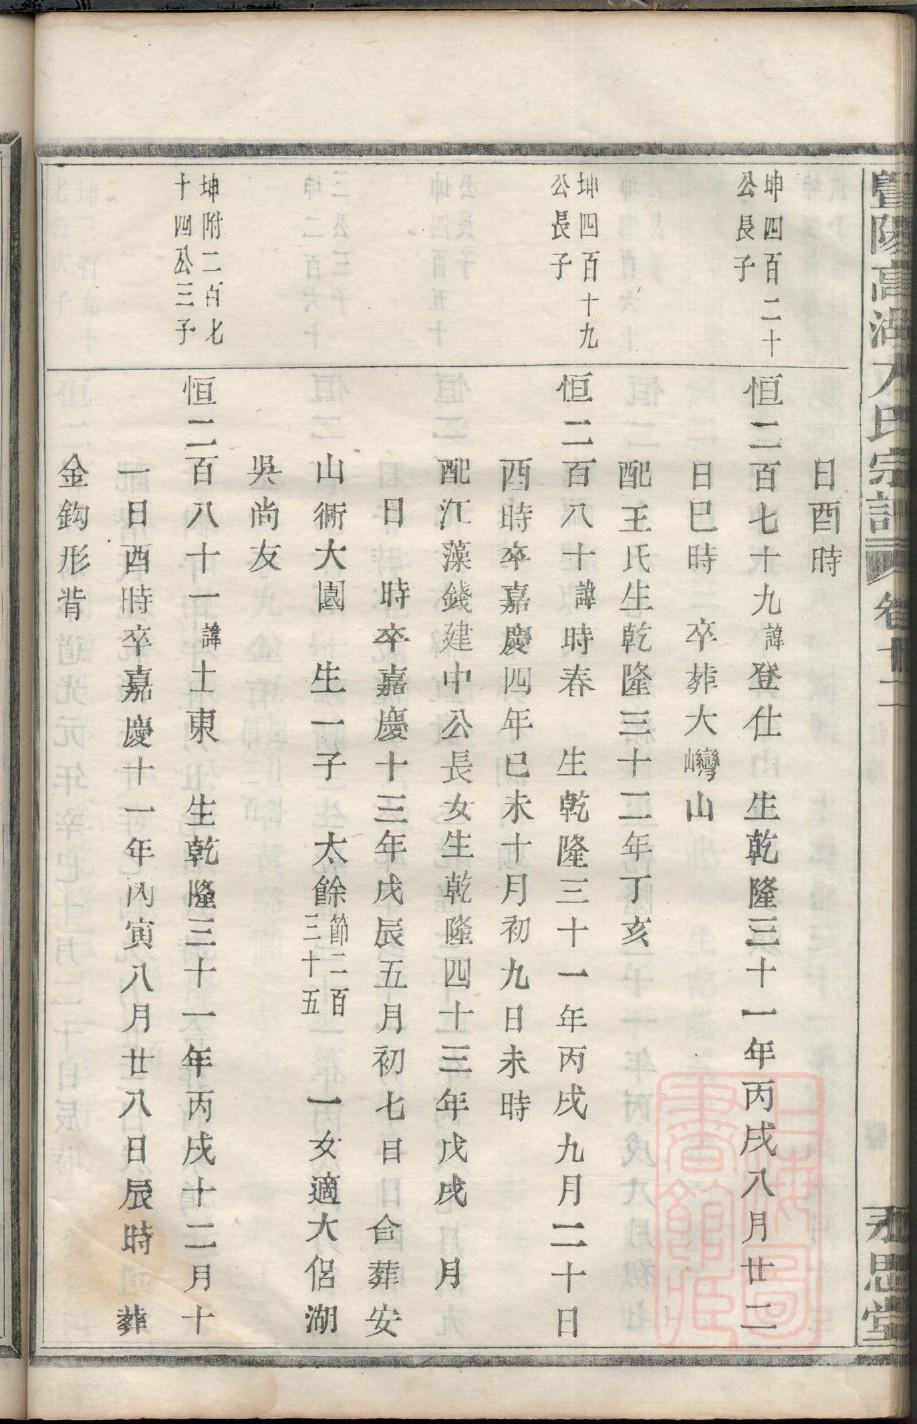 暨陽高湖方氏宗譜 卷十二
永思堂
日酉時
坤四百二十
公長子
恒二百七十九諱登仕 生乾隆三十一年丙戌八月廿二
日巳時 卒葬大巒山
配王氏生乾隆三十二年丁亥
坤四百十九
公長子
恒二百八十諱時春 生乾隆三十一年丙戌九月二十日
酉時卒嘉慶四年己未十月初九日未時
配江藻錢建中公長女生乾隆四十三年戊戌 月
日 時卒嘉慶十三年戊辰五月初七日 合葬安
山衕大園 生一子 太餘節二百三十五 一女適大侶湖
吳尚友
坤附二百七
十四公三子
恒二百八十一諱士東 生乾隆三十一年丙戌十二月十
一日酉時卒嘉慶十一年丙寅八月廿八日辰時 葬
金鈎形背